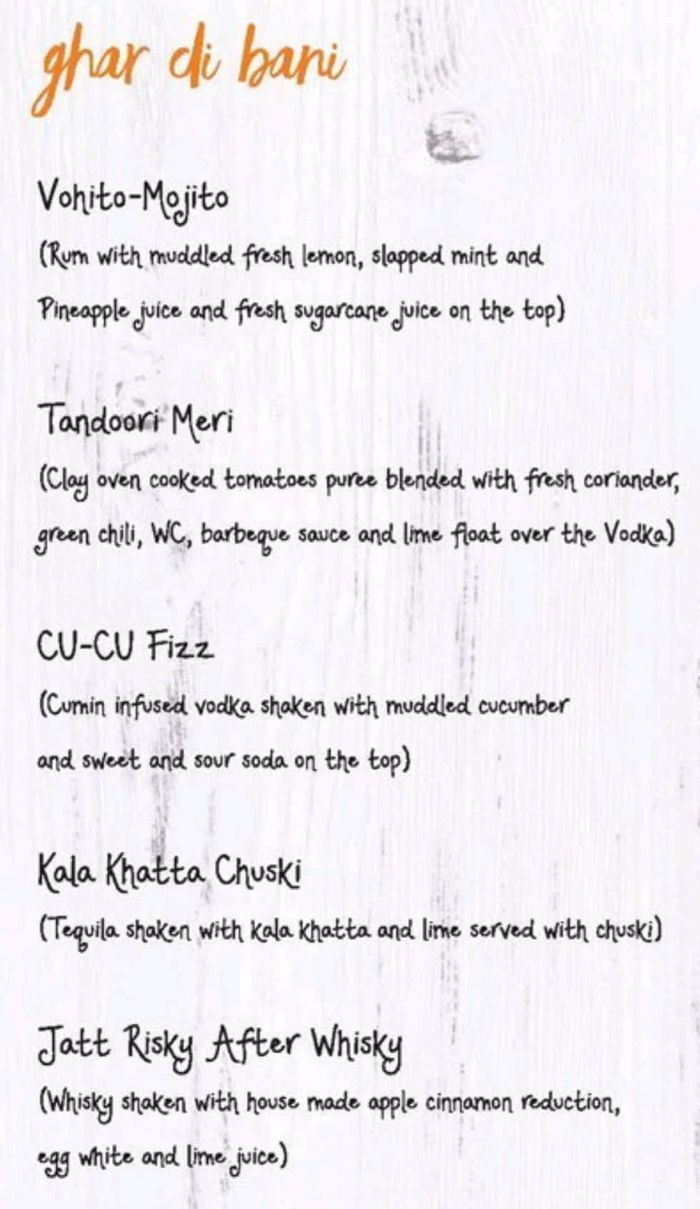 ghar di bani
Vohito-Mojito
(Rum with muddled fresh lemon, slapped mint and
Pineapple juice and fresh sugarcane juice on the top)
Tandoori Meri
(Clay oven cooked tomatoes puree blended with fresh coriander,
green chili, WC, barbeque sauce and lime float over the Vodka)
CU-CU Fizz
(Cumin infused vodka shaken with muddled cucumber
and sweet and sour soda on the top)
Kala Khatta Chuski
(Tequila shaken with kala khatta and lime served with chuski)
Jatt Risky After Whisky
(Whisky shaken with house made apple cinnamon reduction,
egg white and lime juice)